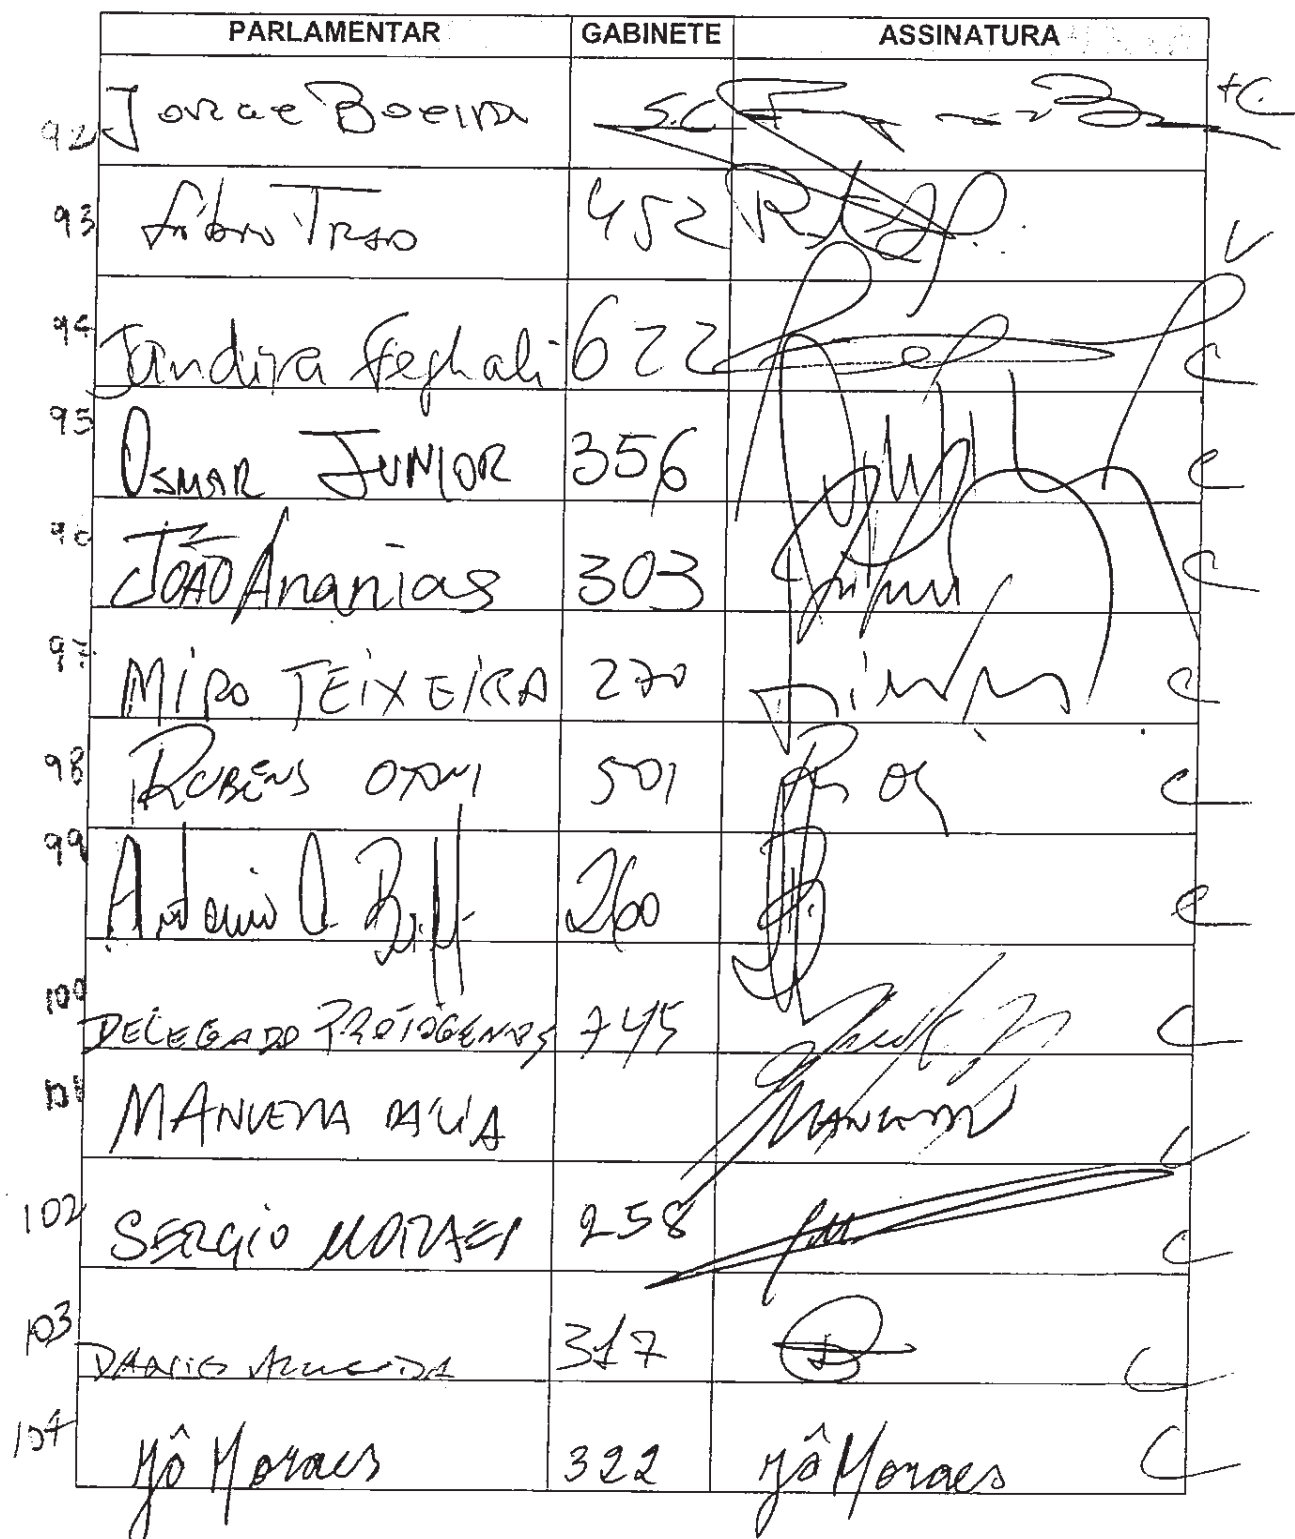 PARLAMENTAR GABINETE ASSINATURA
92 Jorge Boeira S.C +C
93 Fábio Trad 452
94 Jandira Feghali 622 C
95 Osmar Junior 356 C
96 João Ananias 303 C
97 Miro Teixeira 270 C
98 Rubens Otoni 501 C
99 Antonio 260 C
100 Delegado Protógenes 745 C
101 Manuela D'Ávila Manuela C
102 Sergio Moraes 258 C
103 Daniel Almeida 317 C
104 Jô Moraes 322 Jô Moraes C